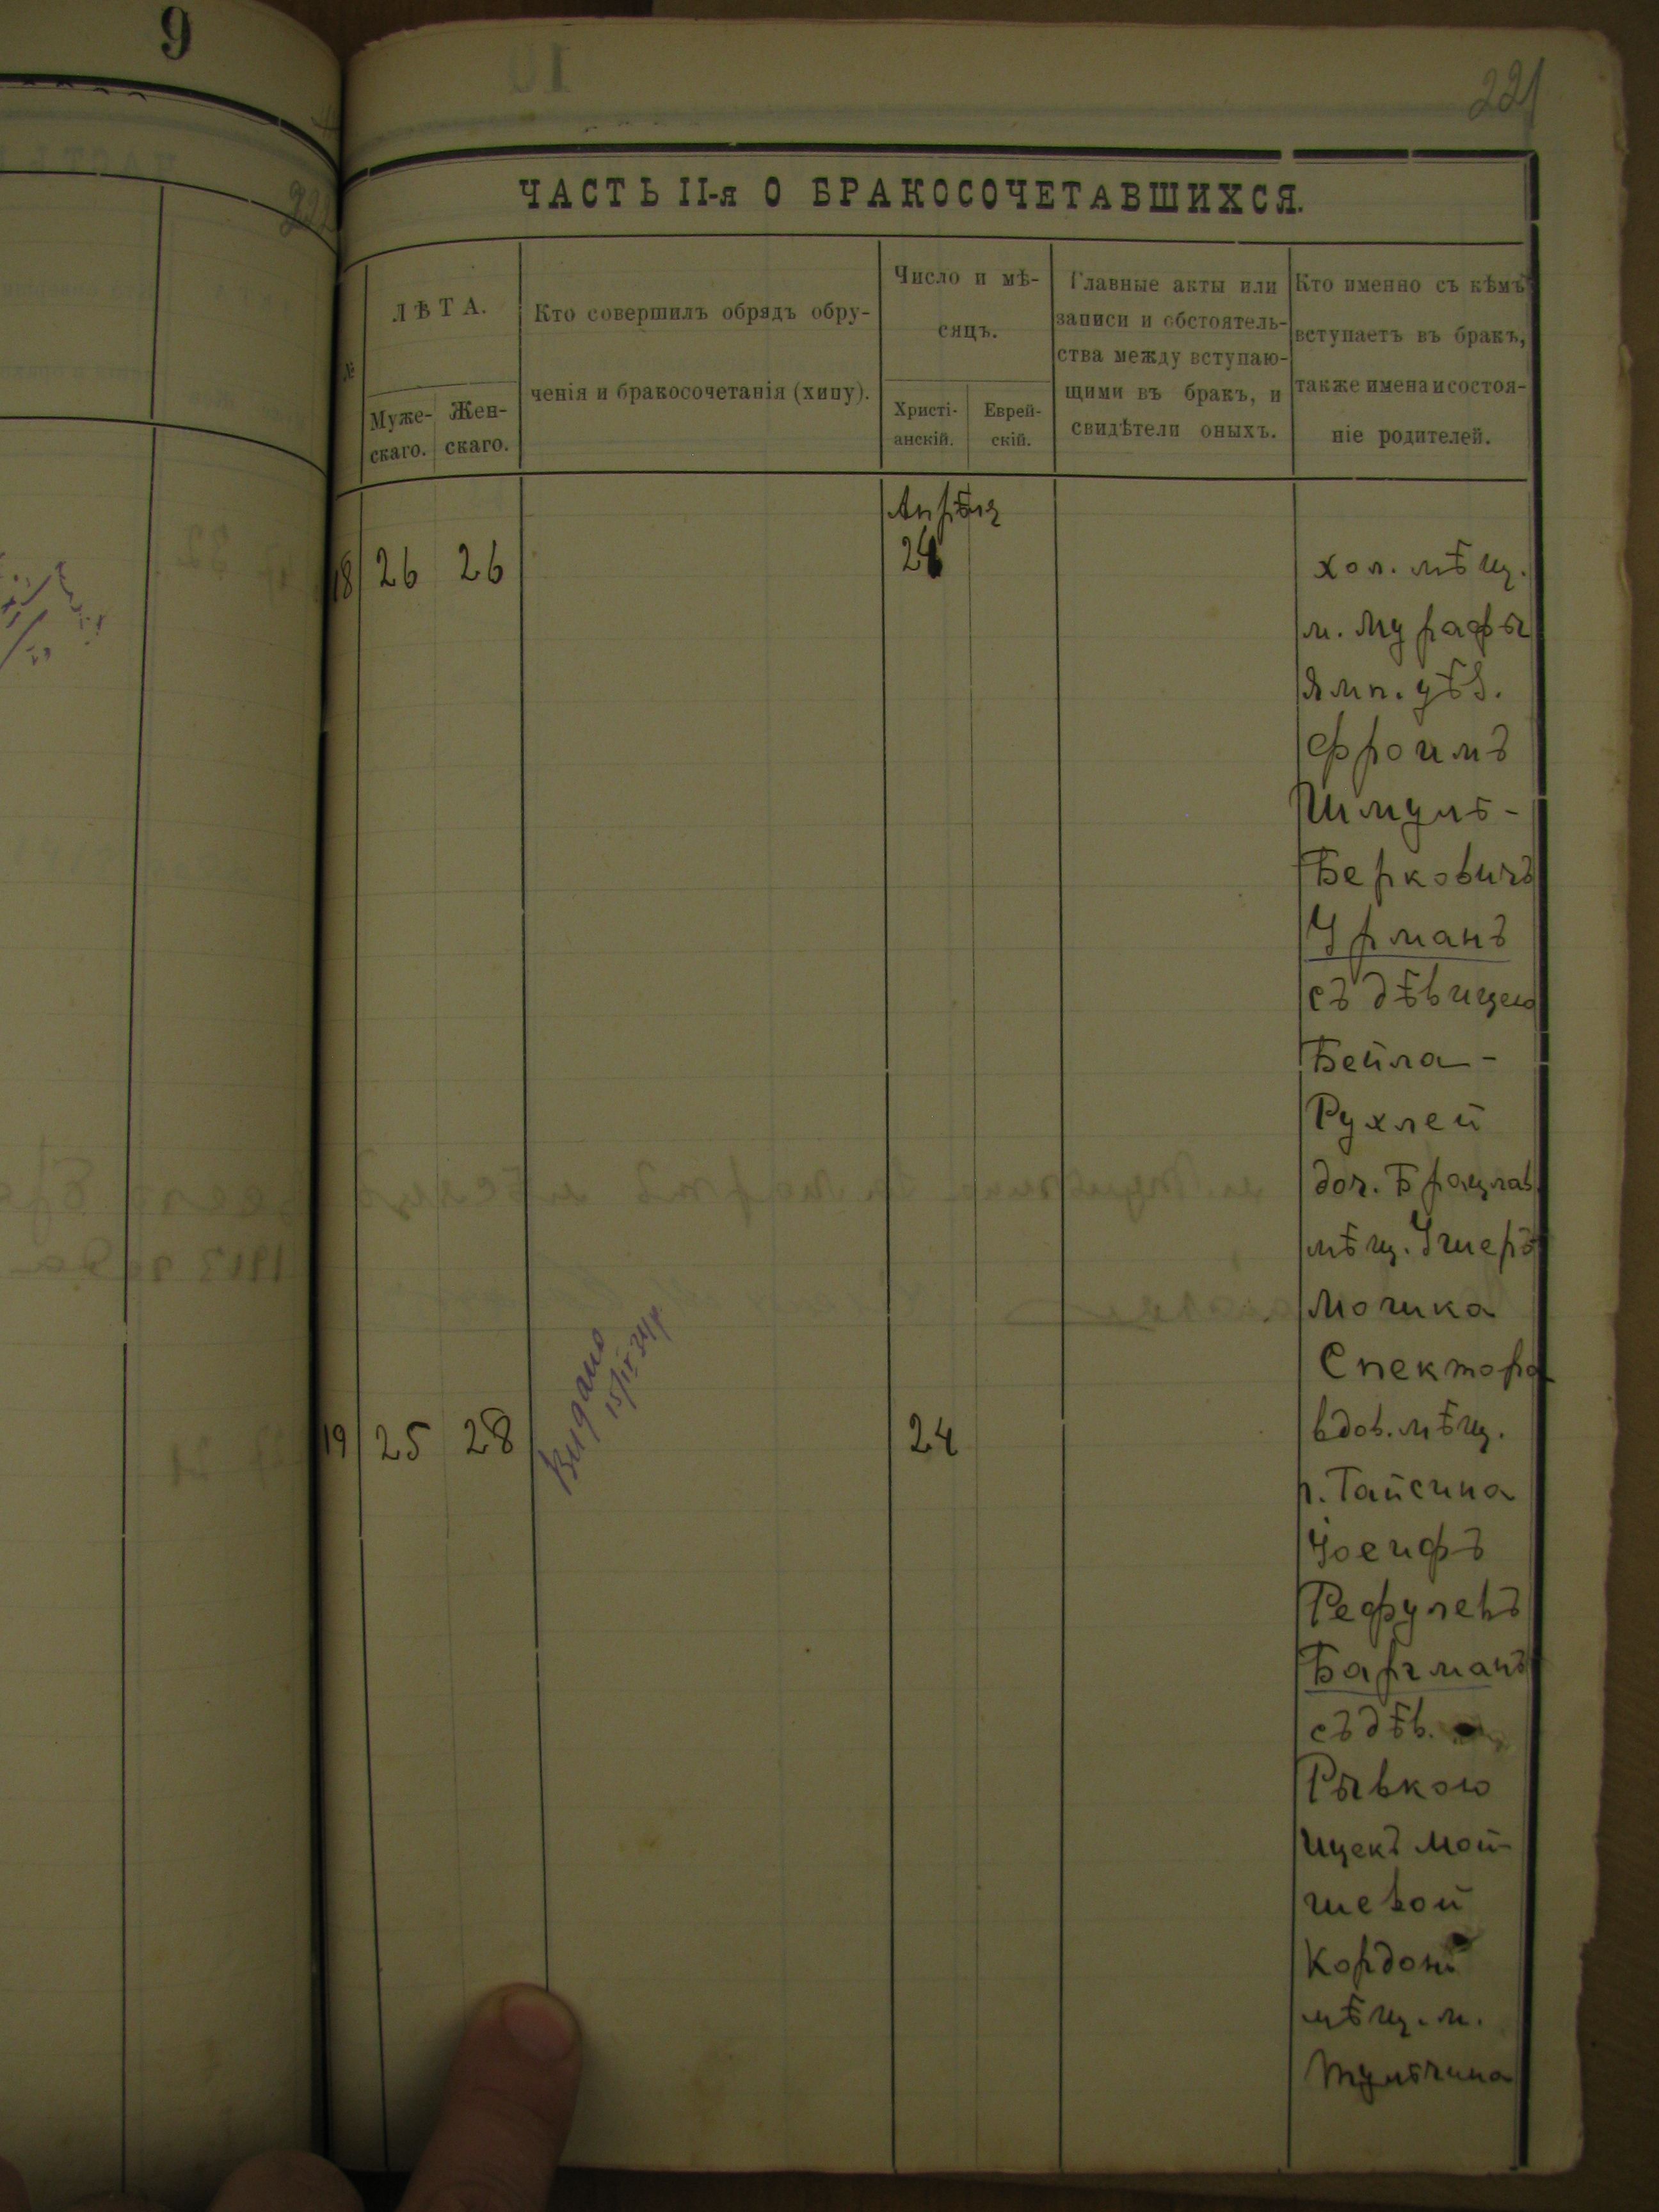 9
221
ЧАСТЬ II-я О БРАКОСОЧЕТАВШИХСЯ.
№
ЛѢТА.
Муже-
скаго.
Жен-
скаго.
Кто совершилъ обрядъ обру-
ченія и бракосочетанія (хипу).
Число и мѣ-
сяцъ.
Христі-
анскій.
Еврей-
скій.
Главные акты или
записи и обстоятель-
ства между вступаю-
щими въ бракъ, и
свидѣтели оныхъ.
Кто именно съ кѣмъ
вступаетъ въ бракъ,
также имена и состоя-
ніе родителей.
Апрѣля
18 26 26 24
хол. мѣщ.
м. Мурафы
Ямп. уѣз.
Фроимъ
Шмуль-
Берковичъ
Урманъ
съ дѣвицею
Бейла-
Рухлей
доч. Брацлав.
мѣщ. Ушеръ
Мошка
Спектора
19 25 28 24
Видано
15/IX 24 р
вдов. мѣщ.
г. Гайсина
Іосифъ
Рефулевъ
Баргманъ
съ дѣв.
Рывкою
Ицекъ Мой-
шевой
Кордонъ
мѣщ. м.
Тульчина